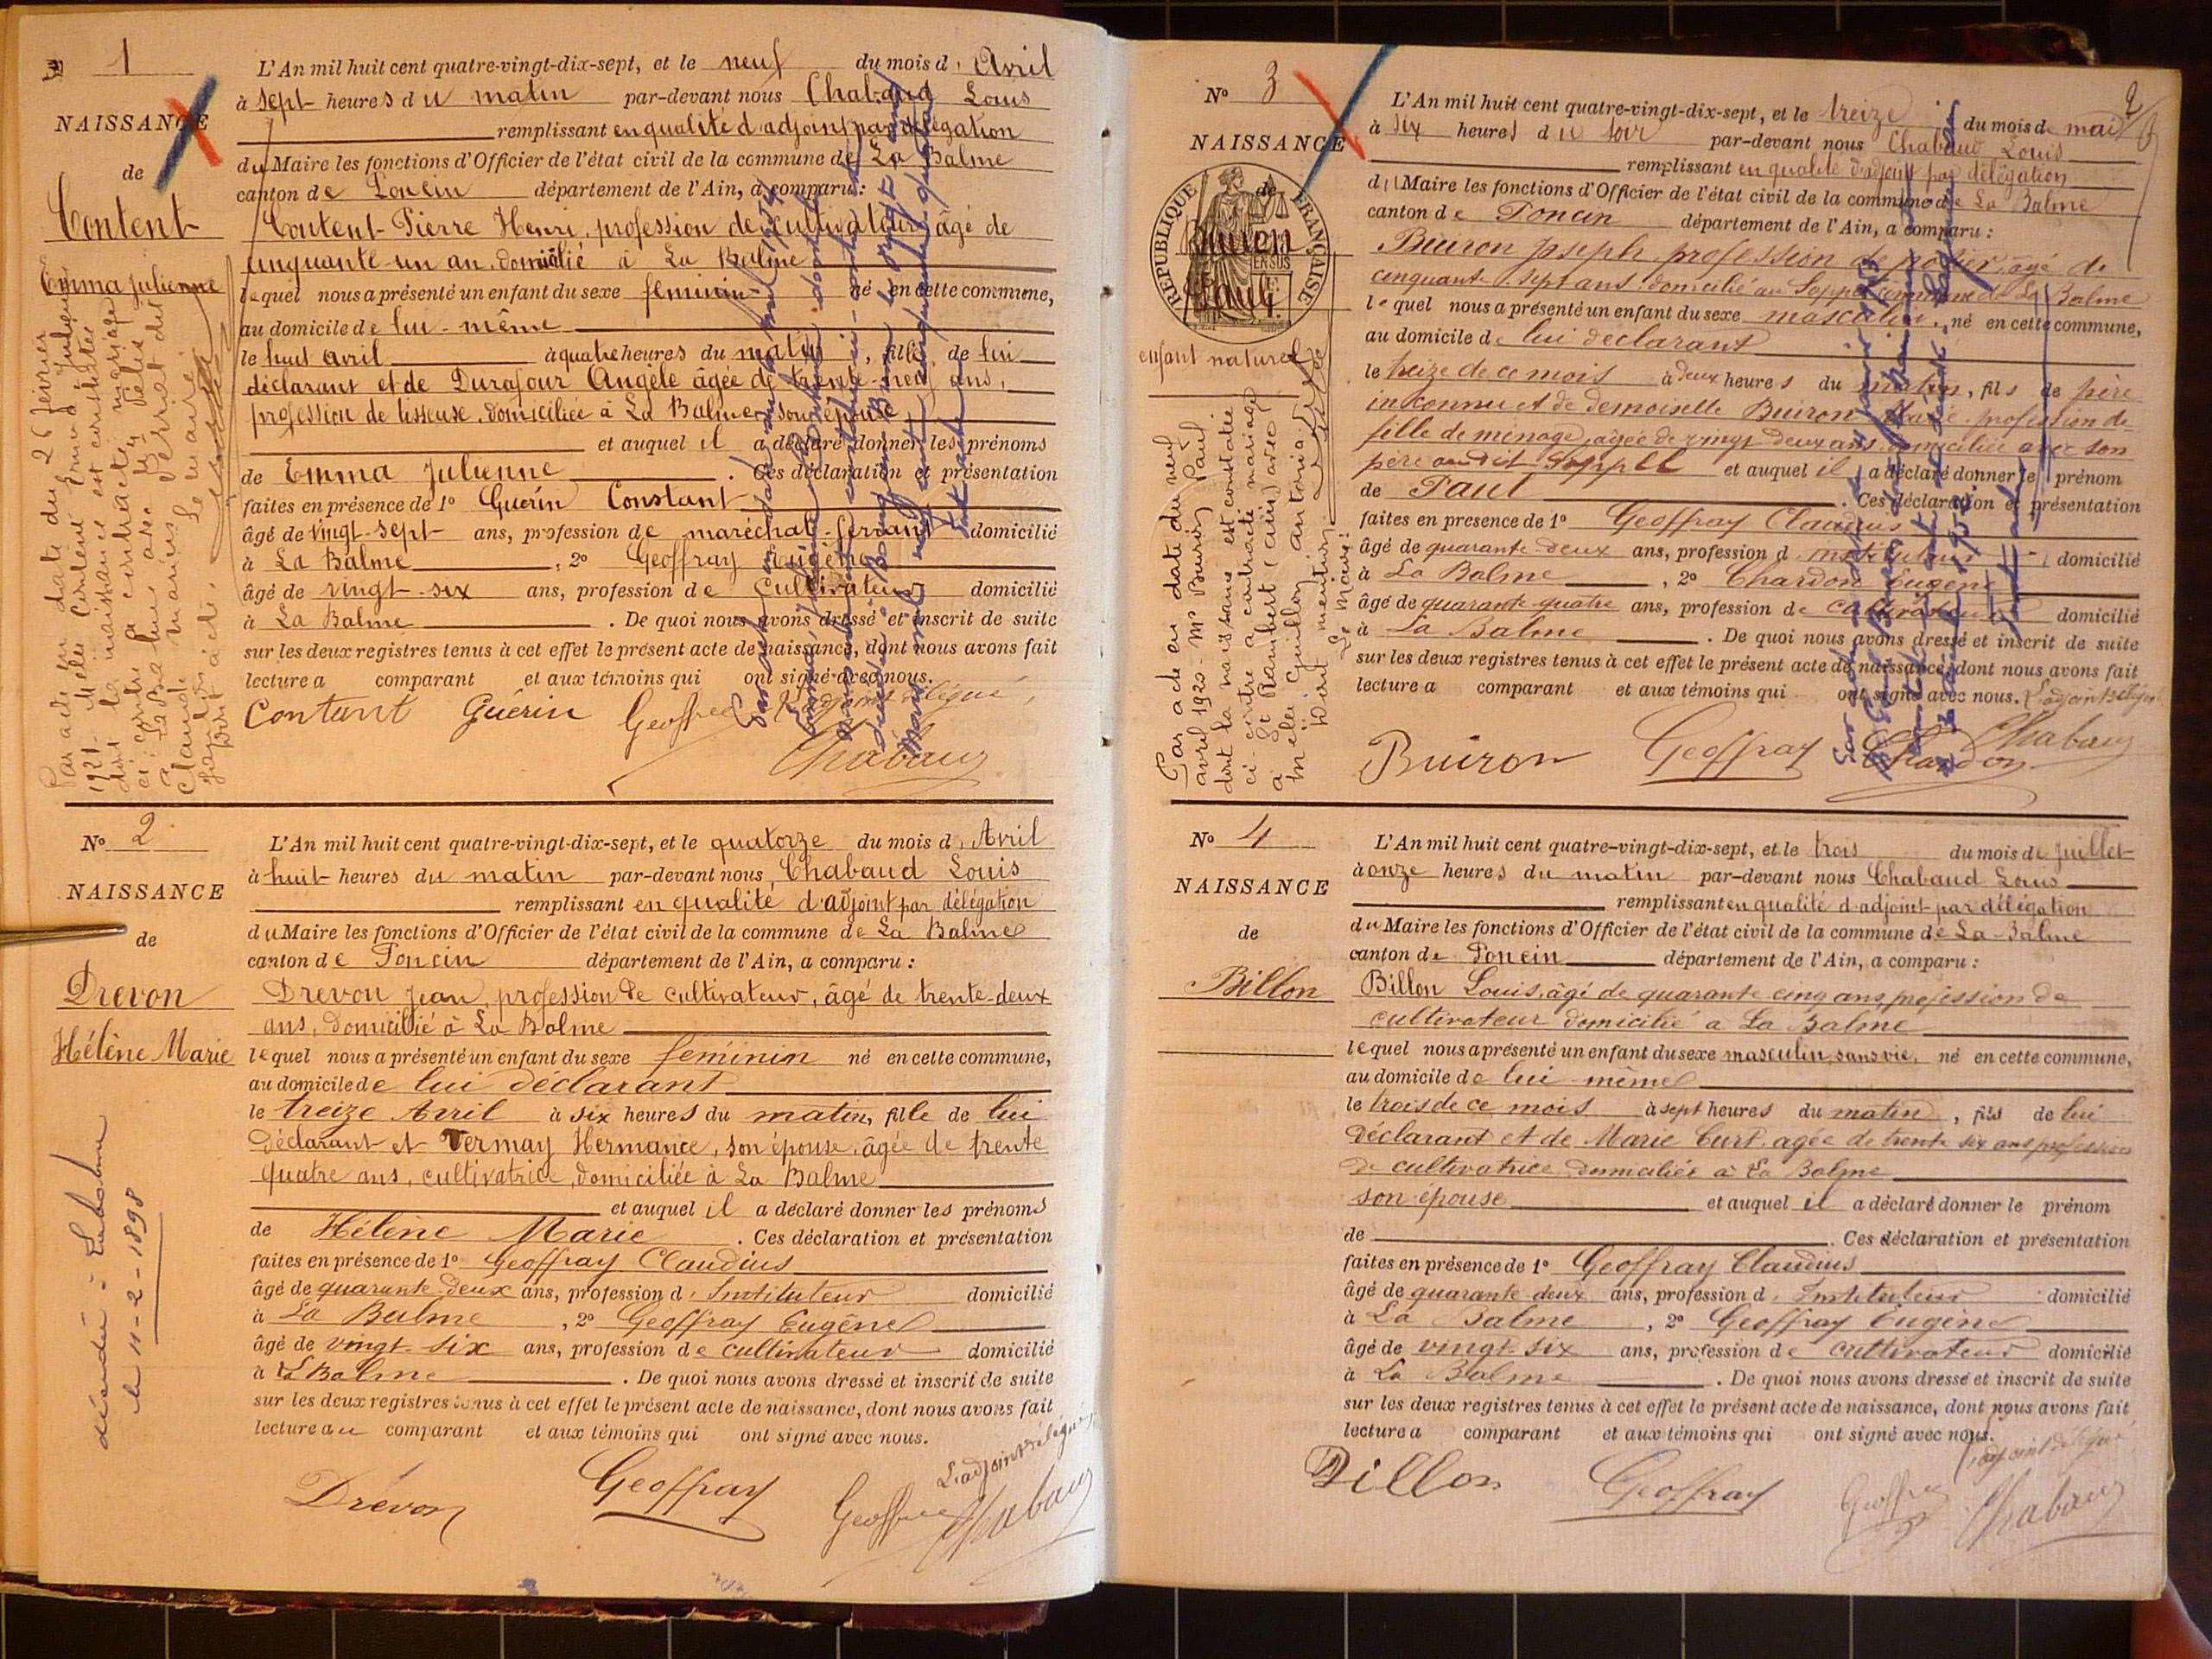 1
NAISSANCE
de
Content
Emma Julienne
L'An mil huit cent quatre-vingt-dix-sept, et le neuf du mois d' Avril
à sept heures du matin par-devant nous Chabaud Louis
remplissant en qualité d'adjoint par délégation
du Maire les fonctions d'Officier de l'état civil de la commune de La Balme
canton de Poncin département de l'Ain, a comparu :
Content Pierre Henri, profession de cultivateur âgé de
cinquante-un an, domicilié à La Balme
lequel nous a présenté un enfant du sexe féminin né en cette commune,
au domicile de lui-même
le huit avril à quatre heures du matin, fille de lui
déclarant et de Durafour Angèle âgée de trente-neuf ans,
profession de tisseuse, domiciliée à La Balme, son épouse
et auquel il a déclaré donner les prénoms
de Emma Julienne. Ces déclaration et présentation
faites en présence de 1º Guérin Constant
âgé de vingt-sept ans, profession de maréchal-ferrant domicilié
à La Balme, 2º Geoffray Eugène
âgé de vingt-six ans, profession de cultivateur domicilié
à La Balme. De quoi nous avons dressé et inscrit de suite
sur les deux registres tenus à cet effet le présent acte de naissance, dont nous avons fait
lecture a comparant et aux témoins qui ont signé avec nous.
Contant Guérin Geoffray
Chabaud
Par acte en date du 26 février
1921 Melle Content Emma Julienne
dont la naissance est constatée
ci-contre a contracté mariage
à La Balme avec Mr
Claude Marius
dont acte. Le Maire
Nº 2
NAISSANCE
de
Drevon
Hélène Marie
L'An mil huit cent quatre-vingt-dix-sept, et le quatorze du mois d' Avril
à huit heures du matin par-devant nous, Chabaud Louis
remplissant en qualité d'adjoint par délégation
du Maire les fonctions d'Officier de l'état civil de la commune de La Balme
canton de Poncin département de l'Ain, a comparu :
Drevon Jean, profession de cultivateur, âgé de trente-deux
ans, domicilié à La Balme
lequel nous a présenté un enfant du sexe féminin né en cette commune,
au domicile de lui déclarant
le treize Avril à six heures du matin, fille de lui
déclarant et Vermay Hermance, son épouse, âgée de trente
quatre ans, cultivatrice, domiciliée à La Balme
et auquel il a déclaré donner les prénoms
de Hélène Marie. Ces déclaration et présentation
faites en présence de 1º Geoffray Claudius
âgé de quarante-deux ans, profession d'Instituteur domicilié
à La Balme, 2º Geoffray Eugène
âgé de vingt-six ans, profession de cultivateur domicilié
à La Balme. De quoi nous avons dressé et inscrit de suite
sur les deux registres tenus à cet effet le présent acte de naissance, dont nous avons fait
lecture au comparant et aux témoins qui ont signé avec nous.
L'adjoint délégué
Drevon Geoffray Geoffray Chabaud
décédée à Labalme
le 11-2-1898
2
Nº 3
NAISSANCE
de
RÉPUBLIQUE FRANÇAISE
Buiron
Paul
enfant naturel
L'An mil huit cent quatre-vingt-dix-sept, et le treize du mois de mai
à six heures du soir par-devant nous Chabaud Louis
remplissant en qualité d'adjoint par délégation
du Maire les fonctions d'Officier de l'état civil de la commune de La Balme
canton de Poncin département de l'Ain, a comparu :
Buiron Joseph profession de âgé de
cinquante-sept ans domicilié au commune de La Balme
lequel nous a présenté un enfant du sexe masculin, né en cette commune,
au domicile de lui déclarant
le treize de ce mois à deux heures du matin, fils de père
inconnu et de demoiselle Buiron Marie profession de
fille de ménage, âgée de vingt-deux ans domiciliée avec son
père audit et auquel il a déclaré donner le prénom
de Paul. Ces déclaration et présentation
faites en présence de 1º Geoffray Claudius
âgé de quarante-deux ans, profession d'instituteur domicilié
à La Balme, 2º Chardon Eugène
âgé de quarante-quatre ans, profession de cultivateur domicilié
à La Balme. De quoi nous avons dressé et inscrit de suite
sur les deux registres tenus à cet effet le présent acte de naissance, dont nous avons fait
lecture a comparant et aux témoins qui ont signé avec nous. L'adjoint délégué
Buiron Geoffray Chardon Chabaud
Par acte en date du neuf
avril 1920 Mr Buiron Paul
dont la naissance est constatée
ci-contre a contracté mariage
à St Rambert (Ain) avec
Melle Guillon Antonia.
Dont mention
Le Maire:
Nº 4
NAISSANCE
de
Billon
L'An mil huit cent quatre-vingt-dix-sept, et le trois du mois de juillet
à onze heures du matin par-devant nous Chabaud Louis
remplissant en qualité d'adjoint par délégation
du Maire les fonctions d'Officier de l'état civil de la commune de La Balme
canton de Poncin département de l'Ain, a comparu :
Billon Louis, âgé de quarante cinq ans, profession de
cultivateur domicilié à La Balme
lequel nous a présenté un enfant du sexe masculin, sans vie, né en cette commune,
au domicile de lui même
le trois de ce mois à sept heures du matin, fils de lui
déclarant et de Marie Curt, agée de trente six ans profession
de cultivatrice domiciliée à La Balme
son épouse et auquel il a déclaré donner le prénom
de. Ces déclaration et présentation
faites en présence de 1º Geoffray Claudius
âgé de quarante deux ans, profession d'Instituteur domicilié
à La Balme, 2º Geoffray Eugène
âgé de vingt-six ans, profession de cultivateur domicilié
à La Balme. De quoi nous avons dressé et inscrit de suite
sur les deux registres tenus à cet effet le présent acte de naissance, dont nous avons fait
lecture a comparant et aux témoins qui ont signé avec nous.
L'adjoint délégué
Billon Geoffray Geoffray Chabaud